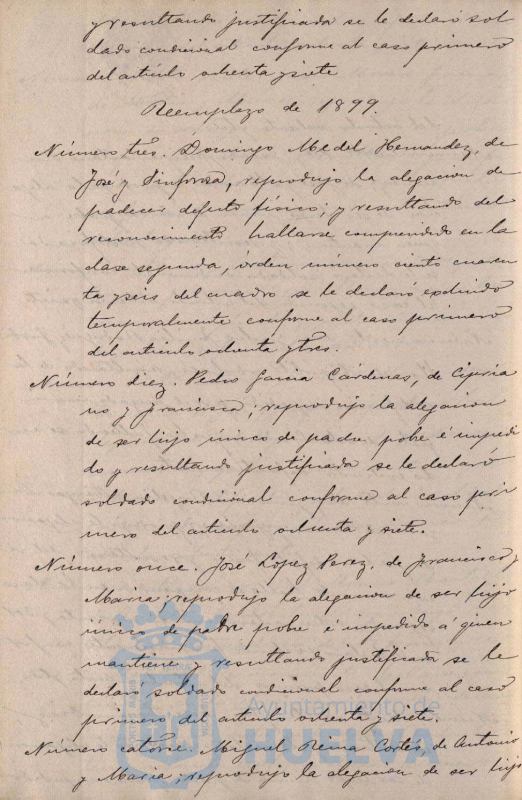 y resultando justificada se le declaró sol
dado condicional conforme al caso primero
del artículo ochenta y siete
Reemplazo de 1899.
Número tres. Domingo Medel Hernandez, de
José y Sinforosa, reprodujo la alegacion de
padecer defecto físico; y resultando del
reconocimiento hallarse comprendido en la
clase segunda, órden número ciento cuaren
ta y seis del cuadro se le declaró excluido
temporalmente conforme al caso primero
del artículo ochenta y tres.
Número diez. Pedro Garcia Cárdenas, de Cipria
no y Francisca; reprodujo la alegacion
de ser hijo único de padre pobre é impedi
do y resultando justificada se le declaró
soldado condicional conforme al caso pri
mero del artículo ochenta y siete.
Número once. José Lopez Perez, de Francisco y
Maria; reprodujo la alegacion de ser hijo
único de padre pobre é impedido á quien
mantiene y resultando justificada se le
declaró soldado condicional conforme al caso
primero del artículo ochenta y siete.
Número catorce. Miguel Reina Cortés, de Antonio
y Maria; reprodujo la alegacion de ser hijo
Ayuntamiento de
HUELVA